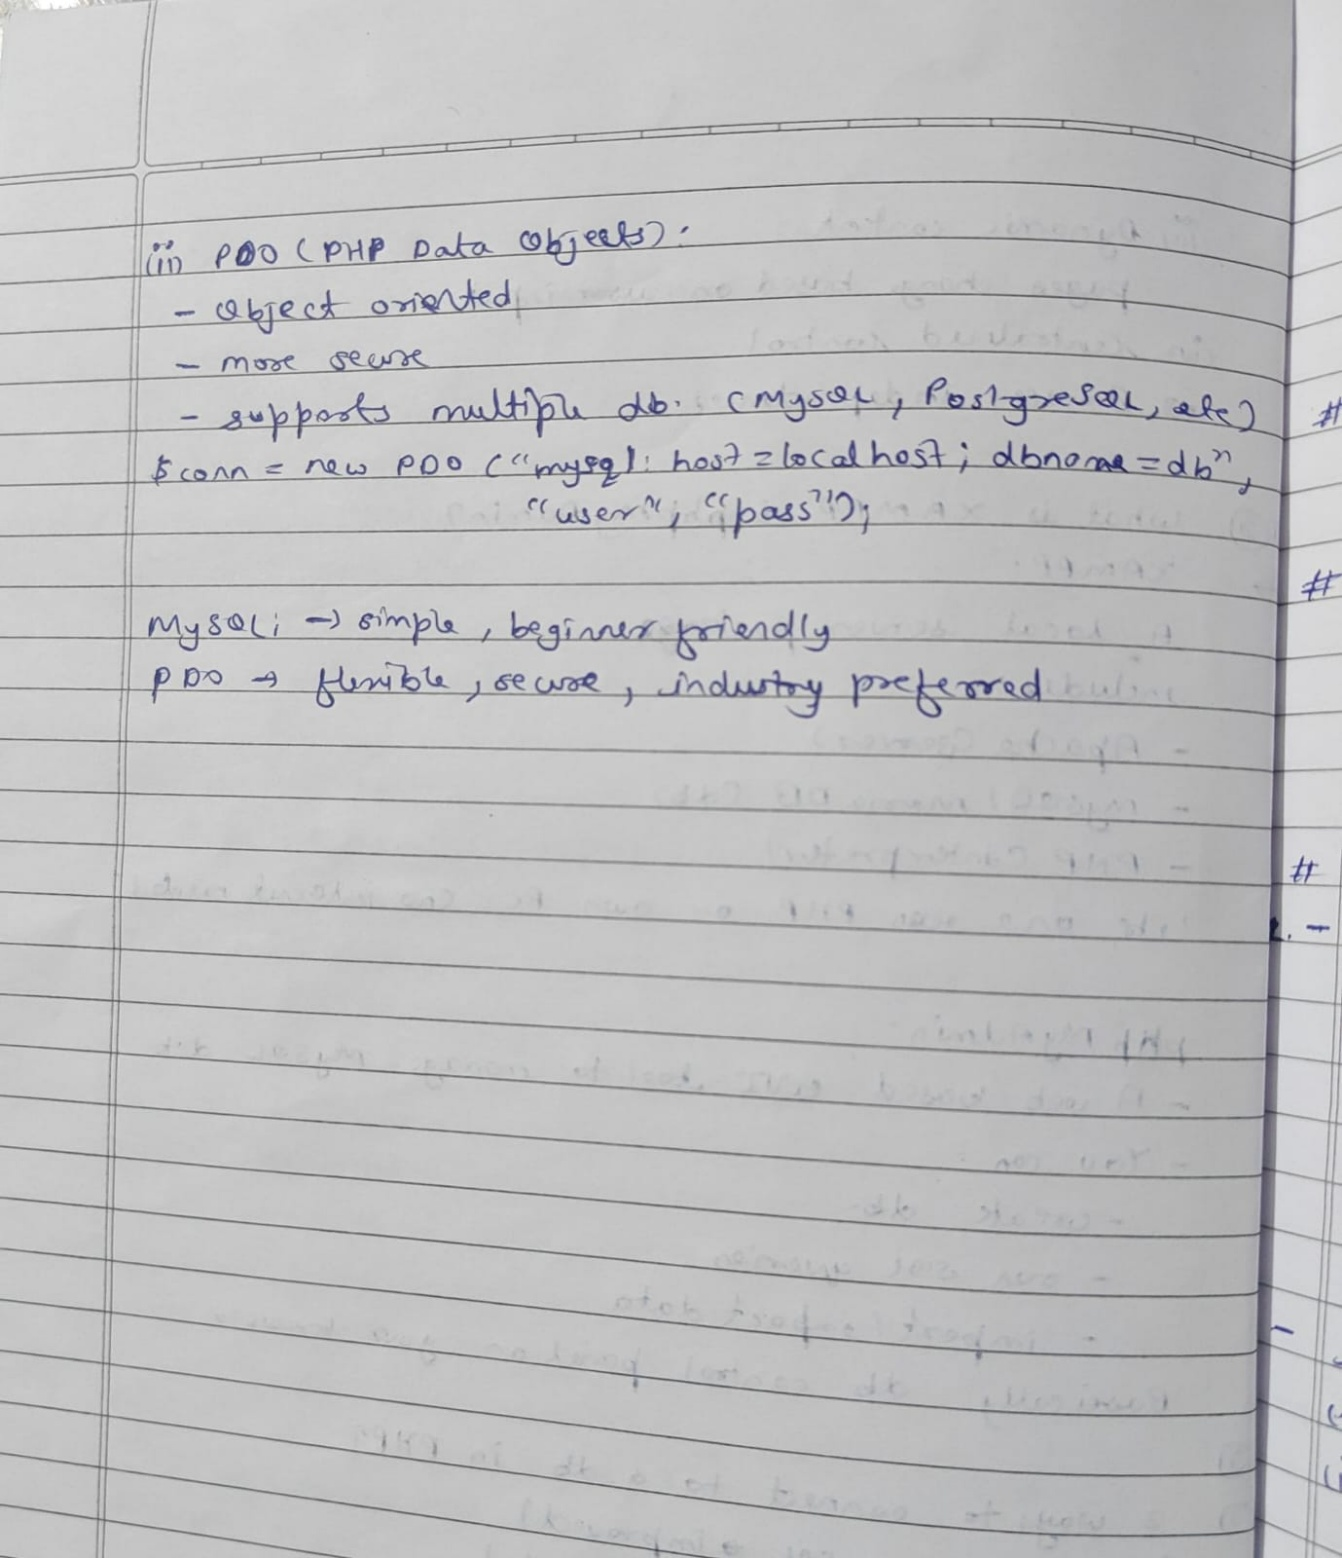 (ii) PDO (PHP Data Objects):
- Object oriented
- more secure
- supports multiple db. (MySQL, PostgreSQL, etc)
$conn = new PDO ("mysql: host=localhost; dbname=db",
"user", "pass");
MySQLi → simple, beginner friendly
PDO → flexible, secure, industry preferred
#
#
#